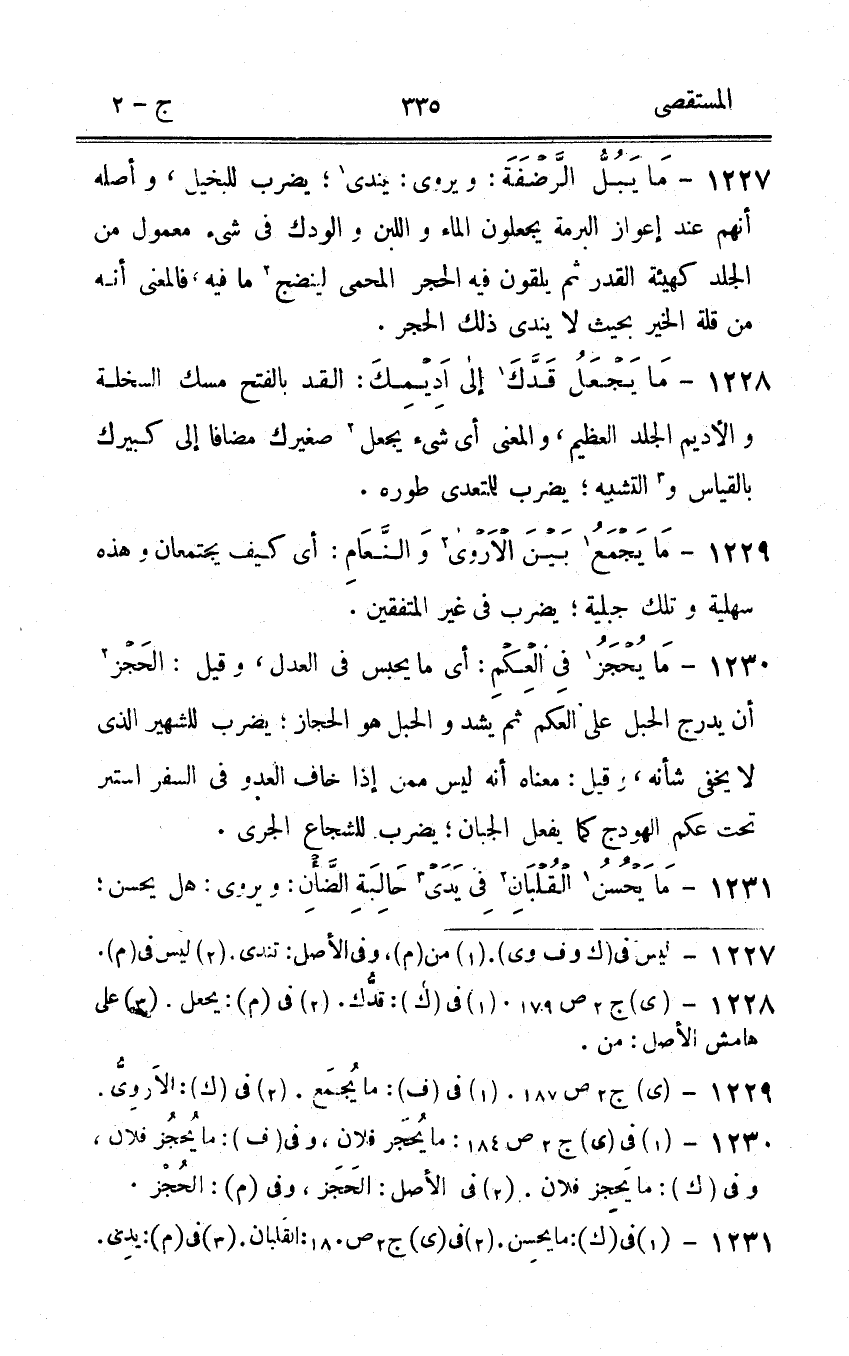 المستقصى ٣٣٥ ج - ٢
١٢٢٧ - مَا يَبُلُّ الرَّضْفَةَ : و يروى : يندى١ ؛ يضرب للبخيل ، و أصله
أنهم عند إعواز البرمة يجعلون الماء و اللبن و الودك فى شىء معمول من
الجلد كهيئة القدر ثم يلقون فيه الحجر المحمى لينضج٢ ما فيه ، فالمعنى أنه
من قلة الخير بحيث لا يندى ذلك الحجر .
١٢٢٨ - مَا يَجْعَلُ قَدَّكَ١ إلٰى اَدِيْمِكَ : القد بالفتح مسك السخلة
و الأديم الجلد العظيم ، و المعنى أى شىء يجعل٢ صغيرك مضافا إلى كبيرك
بالقياس و٣ التشبيه ؛ يضرب للتعدى طوره .
١٢٢٩ - مَا يَجْمَعُ١ بَيْنَ الْاَرْوٰى٢ وَ النَّعَامِ : أى كيف يجتمعان و هذه
سهلية و تلك جبلية ؛ يضرب فى غير المتفقين .
١٢٣٠ - مَا يُحْجَزُ١ فِى الْعِكْمِ : أى ما يحبس فى العدل ، و قيل : الحَجْز٢
أن يدرج الحبل على العكم ثم يشد و الحبل هو الحجاز ؛ يضرب للشهير الذى
لا يخفى شأنه ، و قيل : معناه أنه ليس ممن إذا خاف العدو فى السفر استتر
تحت عكم الهودج كما يفعل الجبان ؛ يضرب للشجاع الجرى .
١٢٣١ - مَا يَحْسُنُ١ الْقُلْبَانِ٢ فِى يَدَىْ٣ حَالِبَةِ الضَّأْنِ : و يروى : هل يحسن ؛
١٢٢٧ - ليس فى (ك و ف وى). (١) من (م)، وفى الأصل : تندى. (٢) ليس فى (م).
١٢٢٨ - (ى) ج ٢ ص ١٧٩ . (١) فى (ك) : قدُّك. (٢) فى (م) : يحعل . (٣) على
هامش الأصل : من .
١٢٢٩ - (ى) ج٢ ص ١٨٧ . (١) فى (ف) : ما يُجمَع . (٢) فى (ك) : الأروىُّ .
١٢٣٠ - (١) فى (ى) ج ٢ ص ١٨٤ : ما يُحجَر فلان ، و فى ( ف ) : ما يُحجُز فلان ،
و فى ( ك ) : ما يَحجِز فلان . (٢) فى الأصل : الحَجَز ، وفى (م) : الحُجْز .
١٢٣١ - (١) فى (ك) : ما يحسِن. (٢) فى (ى) ج٢ ص ١٨٠ : القلبان. (٣) فى (م) : يدى.